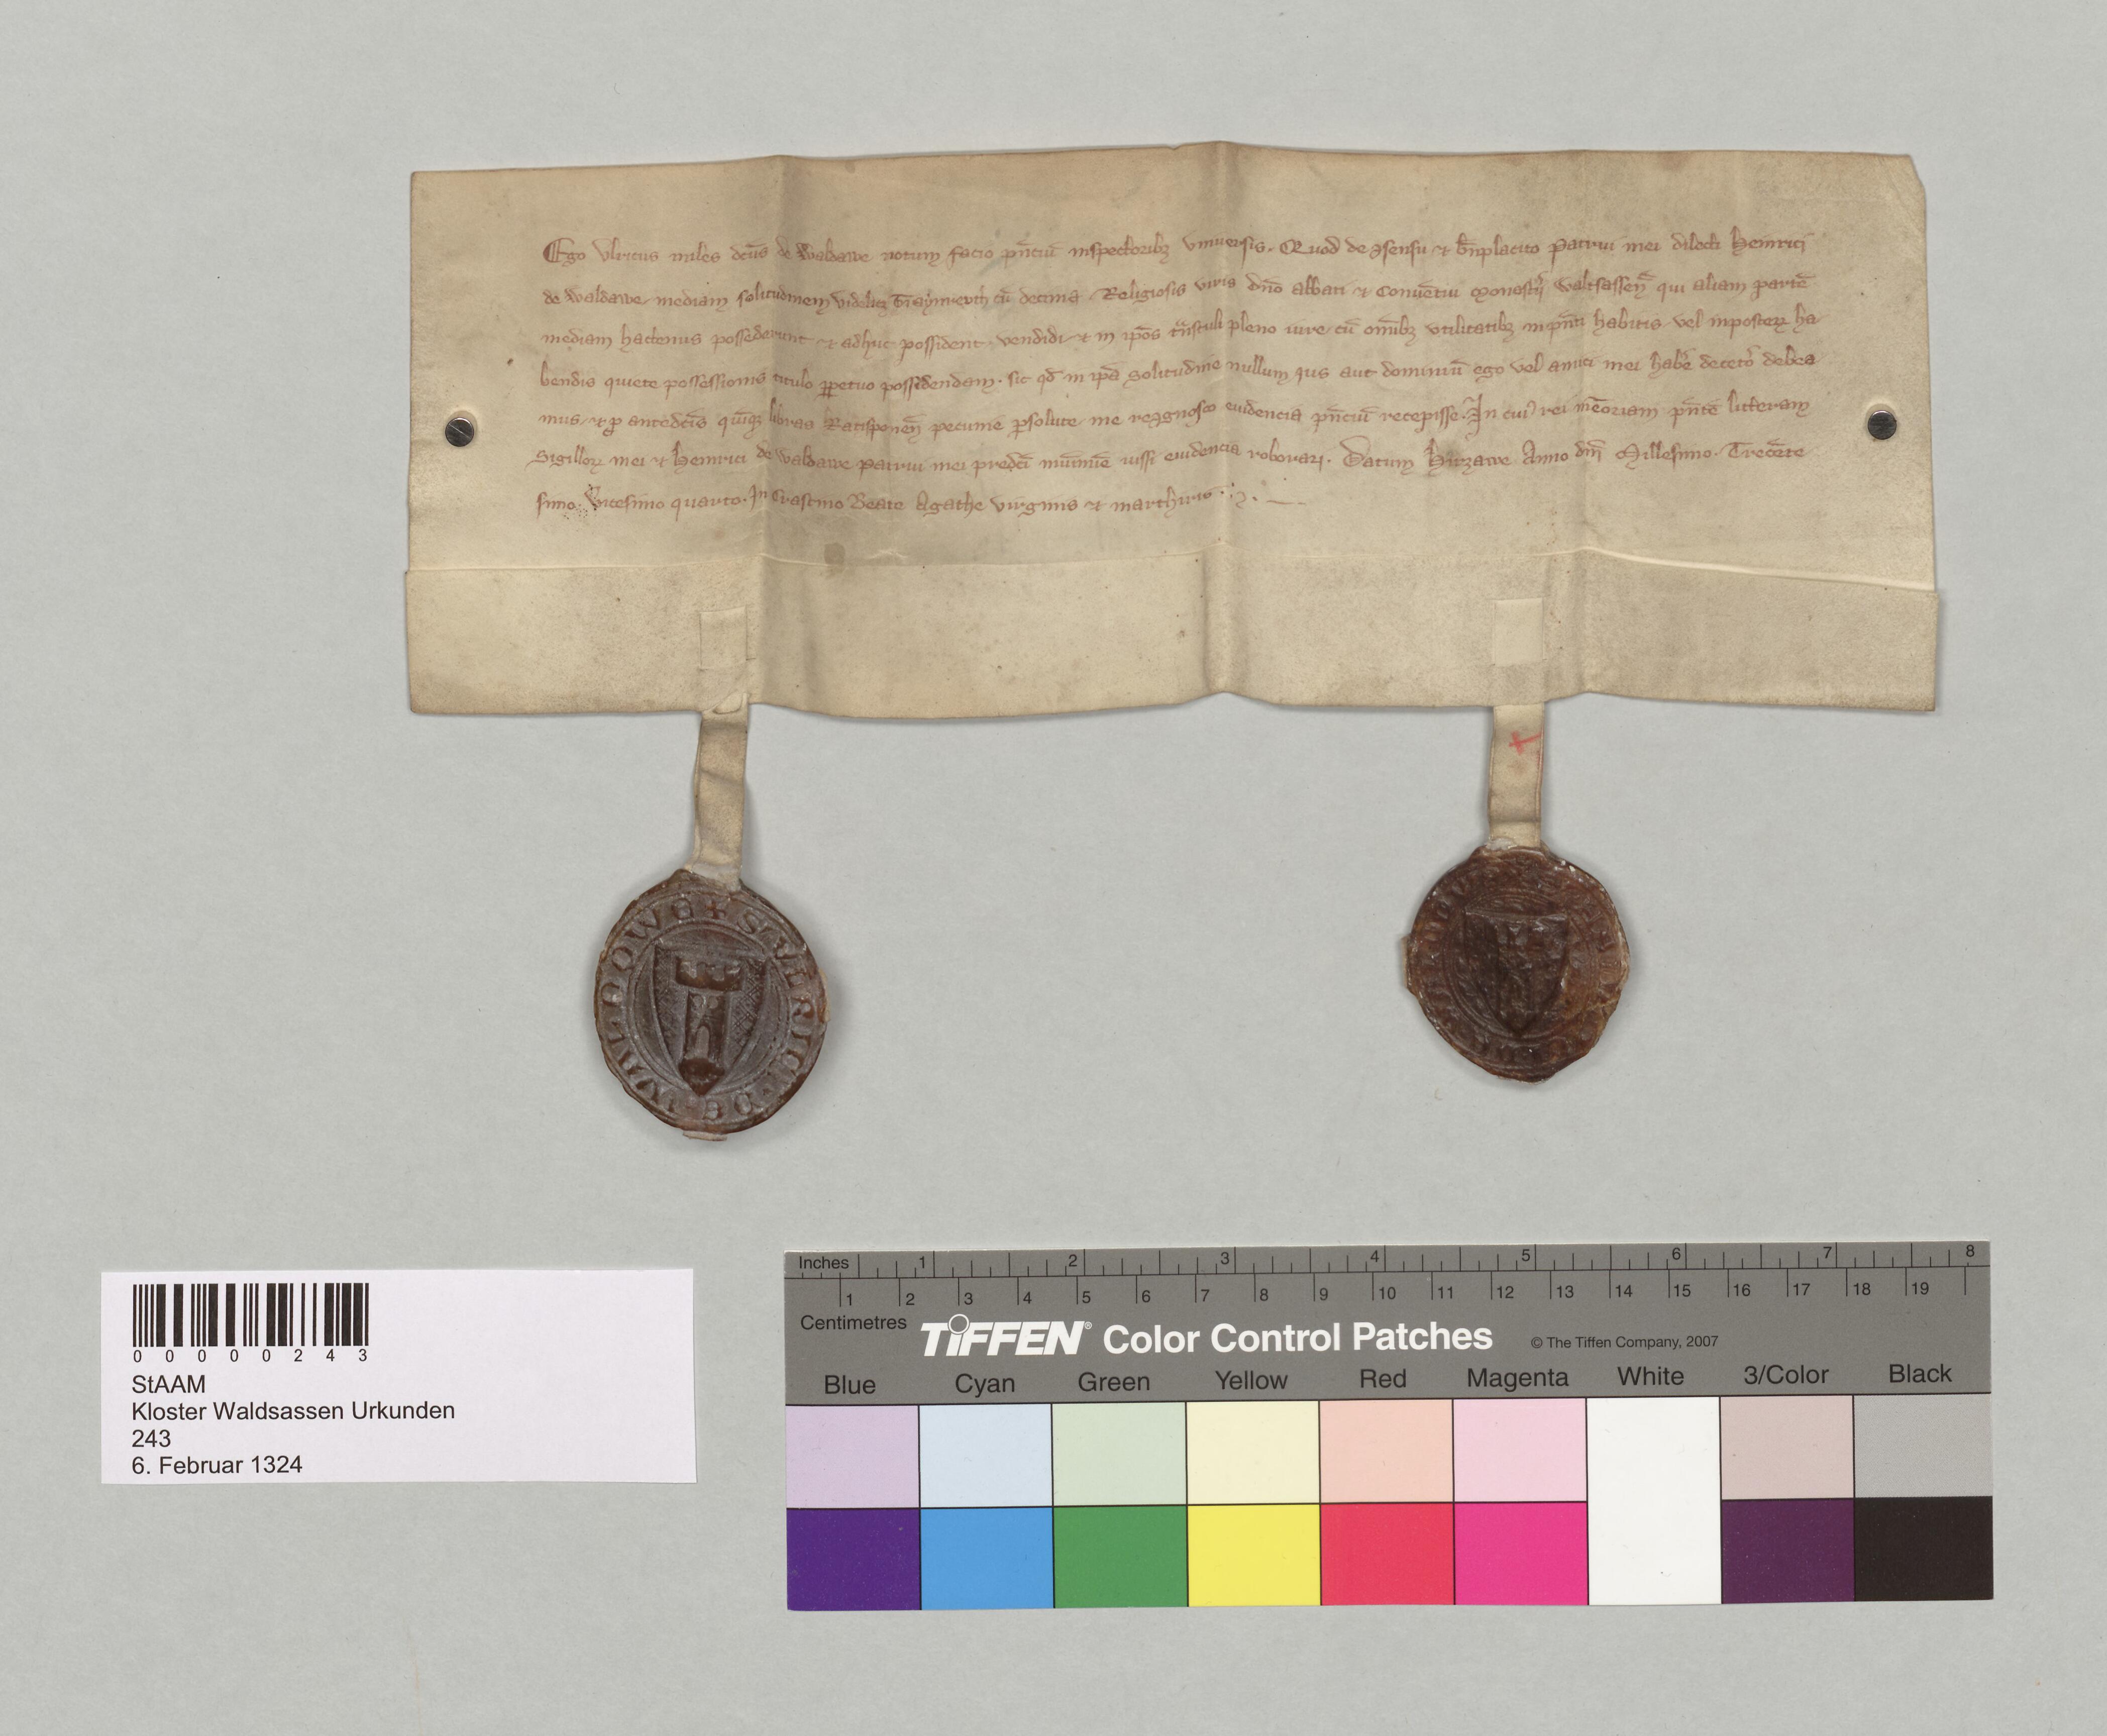 Ego Vlricus miles dcūs de Waldawe notum facio pn̄ciū inspectoribꝫ vniuersis. Quod de ꝯsensu ⁊ bn̄placito Patrui mei dilecti Heinrici
de Waldawe mediam solitudinem videlicꝫ Traymrevth cū decima Religiosis viris dn̄o abbati ⁊ Conuētui monastij Waltsassen̄ qui aliam partē
mediam hactenus possederunt ⁊ adhuc possident vendidi ⁊ in ip̄os tn̄stuli pleno iure cū om̄ibꝫ vtilitatibꝫ inpn̄ti habitis vel inposterꝝ ha
bendis quiete possessionis titulo ꝑpetuo possidendam. sic qd̄ in ip̄a solitudine nullum ius aut dominiū ego vel amici mei habe᷑ deceto᷑ debea
mus ⁊ ꝓ antedcīs quīqꝫ libras Ratisponen̄ pecunie ꝑsolute me reꝯgnosco euidencia pn̄ciū recepisse. In cuiꝰ rei mēoriam pn̄tē litteram
Sigilloꝝ mei ⁊ Heinrici de Waldawe Patrui mei predc̄i munimīe iussi euidencia roborari. Datum Hirzawe Anno dn̄i Millesimo. Trecēte
simo. Vicesimo quarto. In Crastino Beate Agathe virginis ⁊ marthiris.
+ S VLRICI DE WALDOWE
0 0 0 0 0 2 4 3
StAAM
Kloster Waldsassen Urkunden
243
6. Februar 1324
Inches 1 2 3 4 5 6 7 8
1 2 3 4 5 6 7 8 9 10 11 12 13 14 15 16 17 18 19
Centimetres TIFFEN® Color Control Patches © The Tiffen Company, 2007
Blue Cyan Green Yellow Red Magenta White 3/Color Black